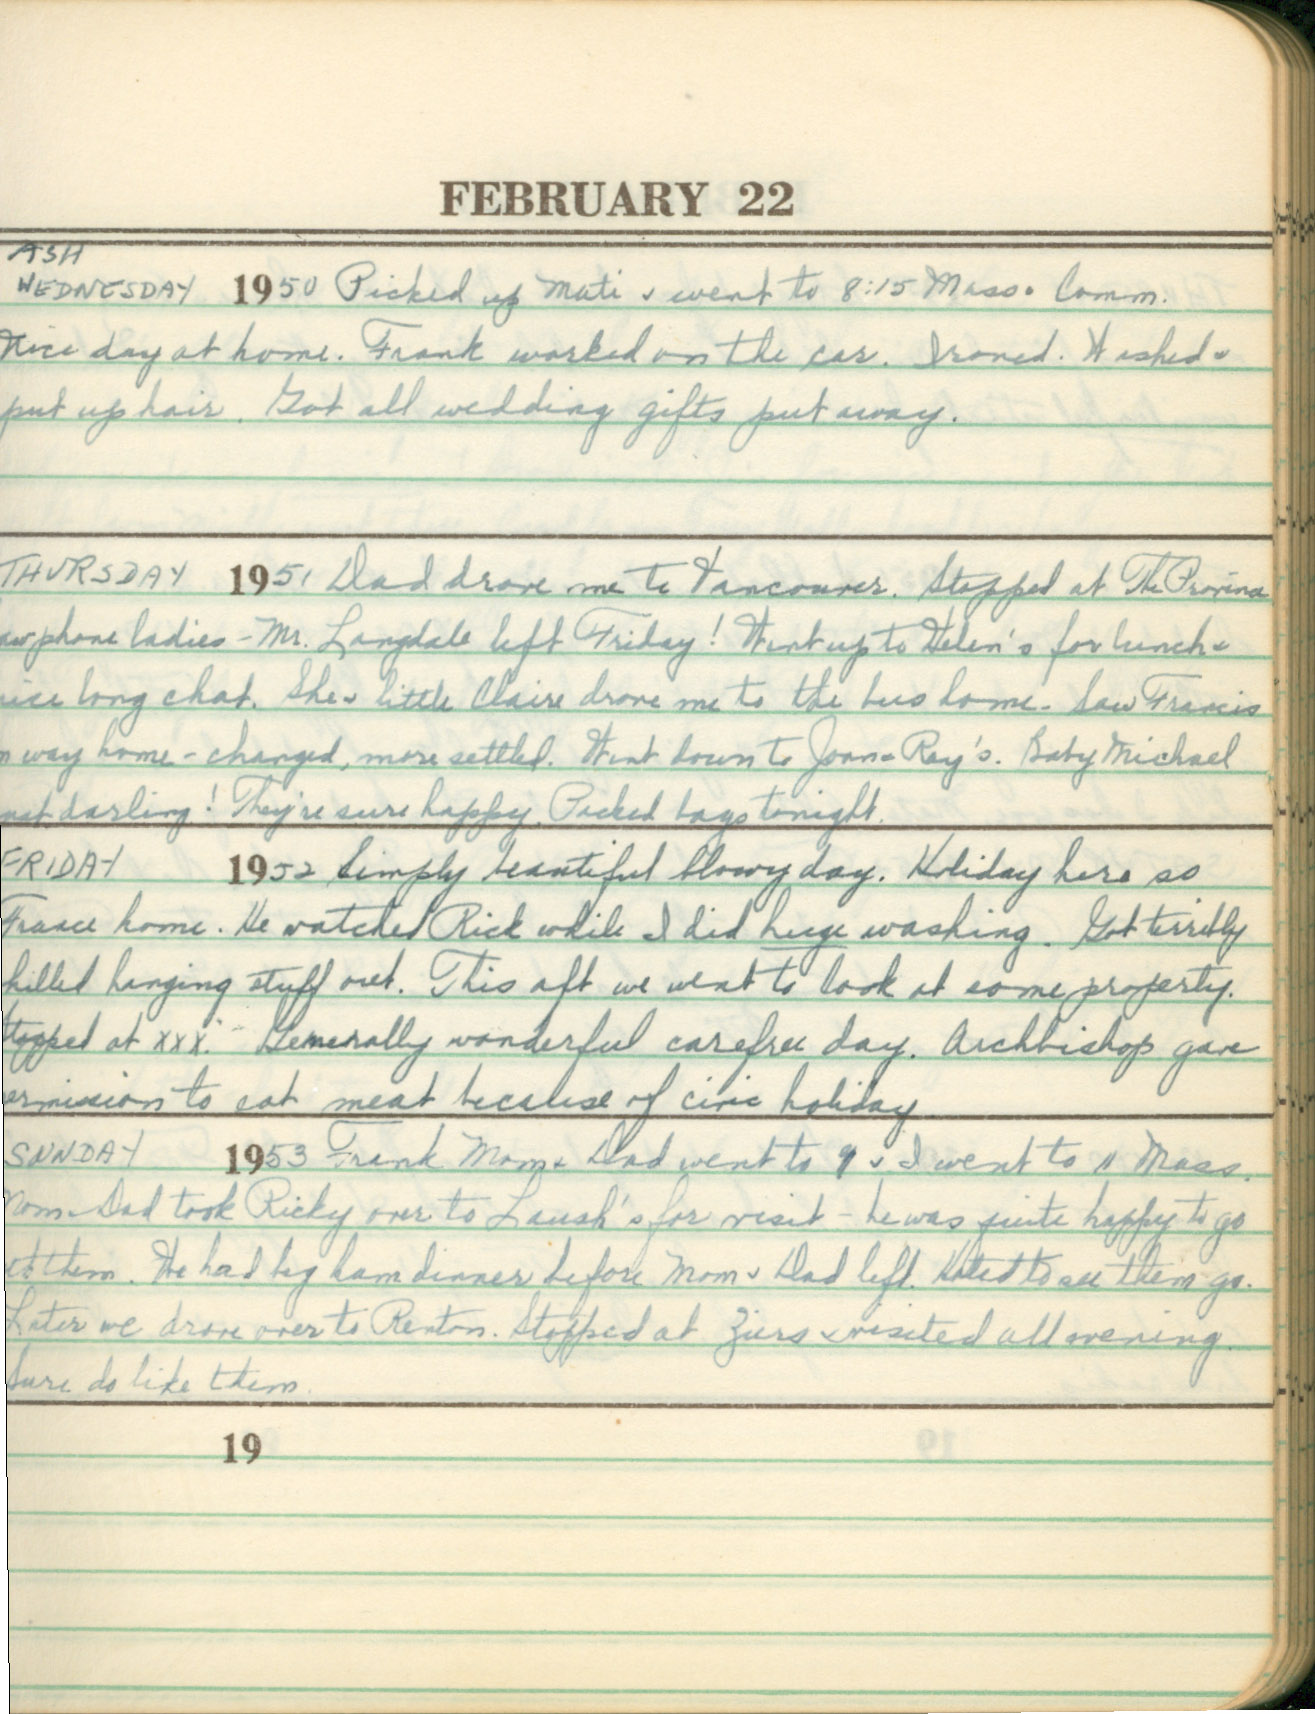 FEBRUARY 22
ASH
WEDNESDAY 1950 Picked up Mati & went to 8:15 Mass & Comm.
Nice day at home. Frank worked on the car. Ironed. Washed &
put up hair. Got all wedding gifts put away.
THURSDAY 1951 Dad drove me to Vancouver. Stopped at The Province
saw phone ladies - Mr. Langdale left Friday! Went up to Helen's for lunch &
nice long chat. She & little Claire drove me to the bus home. Saw Francis
on way home - changed, more settled. Went down to Joan & Ray's. Baby Michael
darling! They're sure happy. Packed bags tonight.
FRIDAY 1952 Simply beautiful blowy day. Holiday here so
home. He watched Rick while I did huge washing. Got terribly
chilled hanging stuff out. This aft we went to look at some property.
Stopped at XXX. - Generally wonderful carefree day. Archbishop gave
permission to eat meat because of civic holiday
SUNDAY 1953 Frank Mom & Dad went to 9 & I went to 11 Mass.
Mom & Dad took Ricky over to for visit - he was quite happy to go
with them. We had big ham dinner before Mom & Dad left. Hated to see them go.
Later we drove over to Renton. Stopped at & visited all evening.
Sure do like them.
19